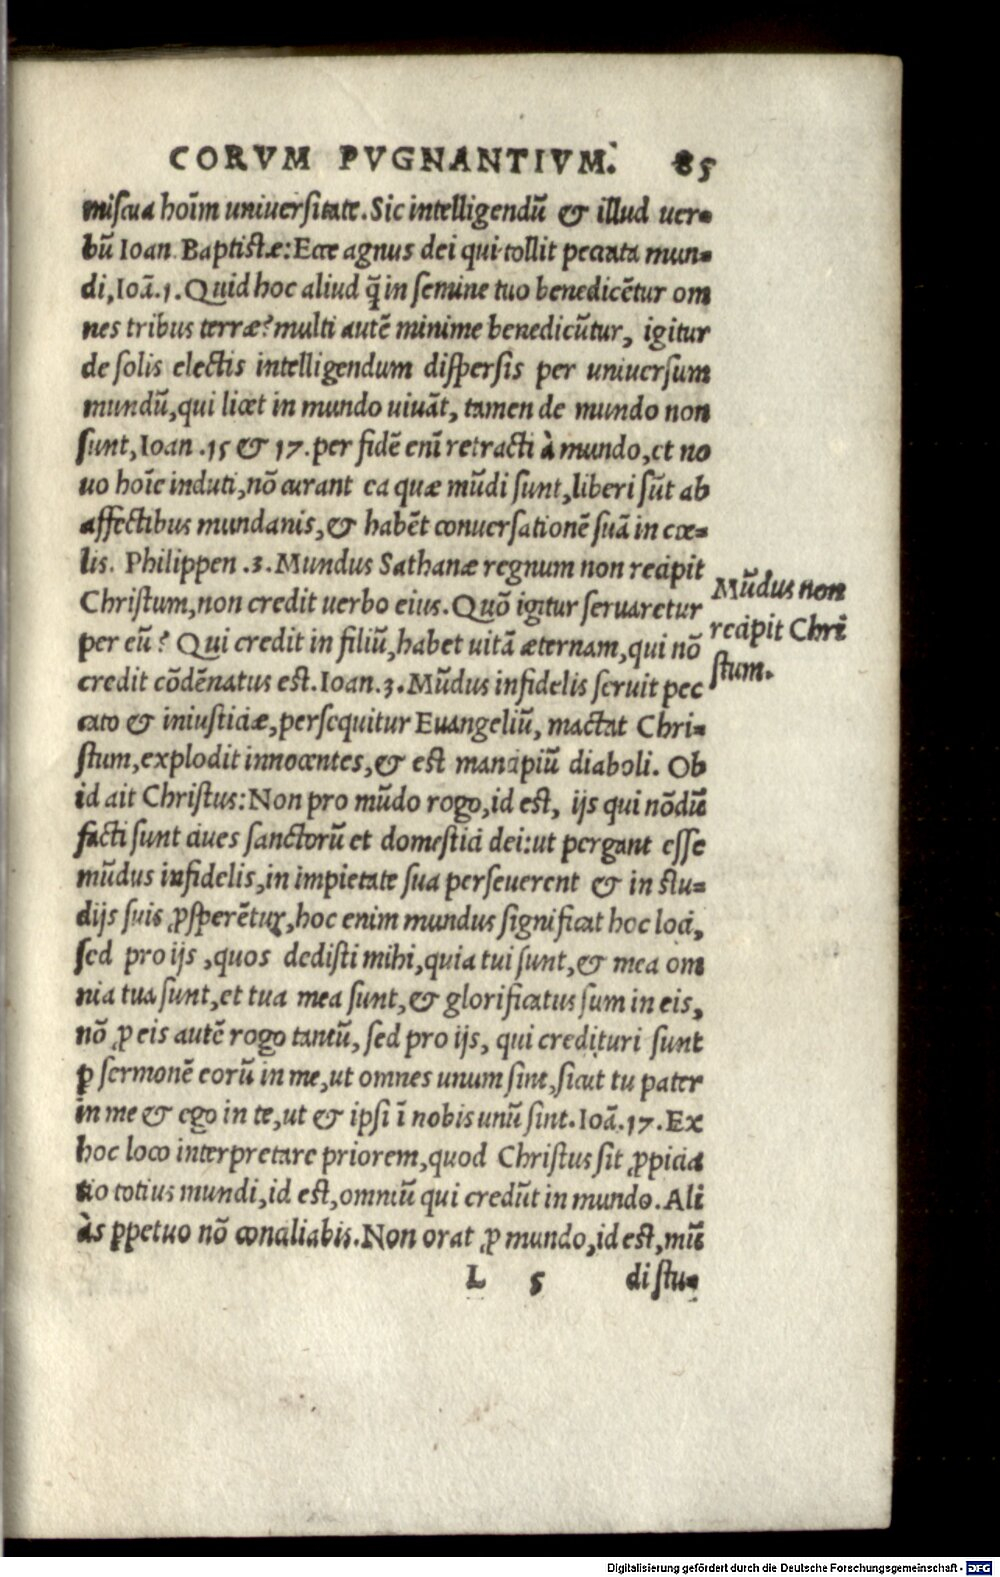 CORVM PVGNANTIVM. 85
miscua hoīm uniuersitate. Sic intelligendū & illud uer-
bū Ioan. Baptistæ: Ecce agnus dei qui tollit peccata mun-
di, Ioā. 1. Quid hoc aliud q̄ in semine tuo benedicētur om
nes tribus terræ? multi autē minime benedicūtur, igitur
de solis electis intelligendum dispersis per uniuersum
mundū, qui licet in mundo uiuāt, tamen de mundo non
sunt, Ioan. 15 & 17. per fidē enī retracti à mundo, et no
uo hoīe induti, nō curant ea quæ mūdi sunt, liberi sūt ab
affectibus mundanis, & habēt conuersationē suā in cœ-
lis. Philippen. 3. Mundus Sathanæ regnum non recipit
Christum, non credit uerbo eius. Quō igitur seruaretur
per eū? Qui credit in filiū, habet uitā æternam, qui nō
credit cōdēnatus est. Ioan. 3. Mūdus infidelis seruit pec
cato & iniusticiæ, persequitur Euangeliū, mactat Chri-
stum, explodit innocentes, & est mancipiū diaboli. Ob
id ait Christus: Non pro mūdo rogo, id est, ijs qui nōdū
facti sunt ciues sanctorū et domestici dei: ut pergant esse
mūdus infidelis, in impietate sua perseuerent & in stu-
dijs suis ꝓsperētur, hoc enim mundus significat hoc loci,
sed pro ijs, quos dedisti mihi, quia tui sunt, & mea om
nia tua sunt, et tua mea sunt, & glorificatus sum in eis,
nō ꝓ eis autē rogo tantū, sed pro ijs, qui credituri sunt
ꝑ sermonē eorū in me, ut omnes unum sint, sicut tu pater
in me & ego in te, ut & ipsi ī nobis unū sint. Ioā. 17. Ex
hoc loco interpretare priorem, quod Christus sit ꝓpicia
tio totius mundi, id est, omniū qui credūt in mundo. Ali
às ꝑpetuo nō conciliabis. Non orat ꝓ mundo, id est, mū
L 5 di stu-
Mūdus non
recipit Chri
stum.
Digitalisierung gefördert durch die Deutsche Forschungsgemeinschaft - DFG